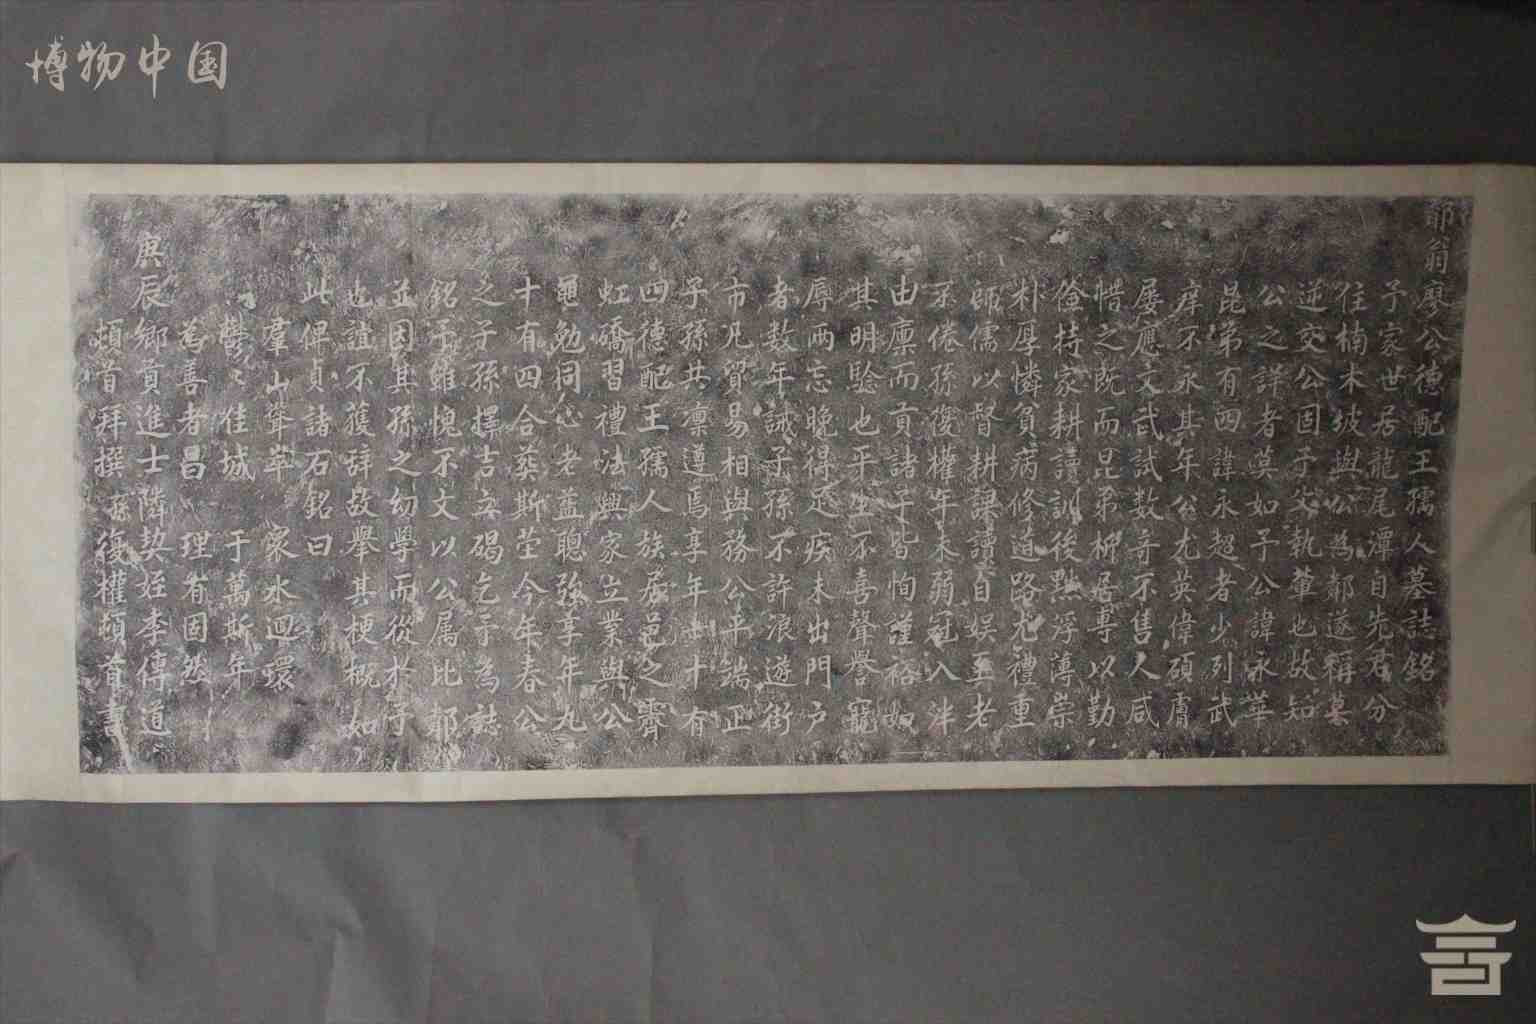 博物中国
節翁廖公德配王孺人墓誌銘
予家世居龍尾潭自先君分
住楠木坡與公為鄰遂稱莫
逆交公固予父執輩也故知
公之詳者莫如予公諱永華
昆弟有四諱永超者少列武
庠不永其年公尤英偉碩膚
屡應文武試数竒不售人咸
惜之既而昆弟柳居專以勤
儉持家耕讀訓後黜浮薄崇
朴厚憐貧病修道路尤禮重
師儒以督耕課讀自娱至老
不倦孫復權年未弱冠入泮
由廩而貢諸子皆恂謹裕如
其明驗也平生不喜聲譽寵
辱兩忘晚得足疾未出門户
者数年誡子孫不許浪遊街
市凡貿易相與務公平端正
子孫共凛遵焉享年七十有
四德配王孺人族居邑之霽
虹橋習禮法與家立業與公
黽勉同心老益聰強享年九
十有四合葬斯塋今年春公
之子孫擇吉立碣乞予為誌
銘予雖愧不文以公属比鄰
並因其孫之幼學而從於予
也誼不獲辞敌舉其梗概如
此俾貞諸石銘曰
羣山聳翠 衆水迴環
鬱々佳城 于萬斯年
為善者昌 理有固然
庚辰鄉貢進士隣契姪李傳道
頓首拜撰 孫復權頓首書